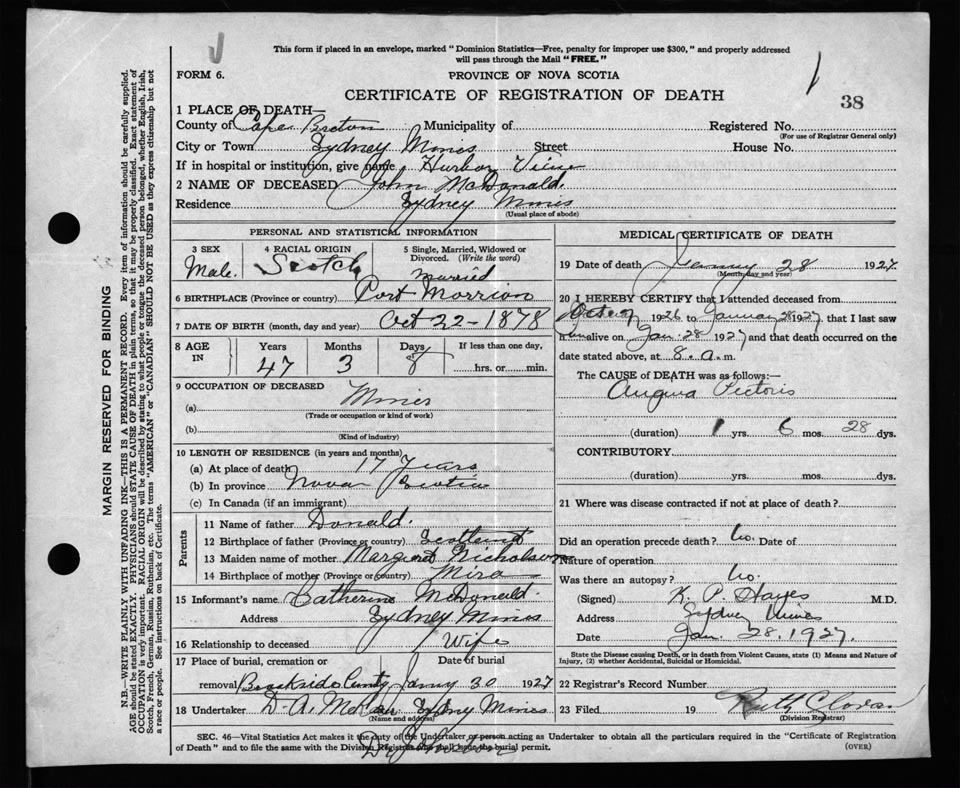 This form if placed in an envelope, marked "Dominion Statistics—Free, penalty for improper use $300," and properly addressed
will pass through the Mail "FREE."
FORM 6.
PROVINCE OF NOVA SCOTIA
CERTIFICATE OF REGISTRATION OF DEATH
38
MARGIN RESERVED FOR BINDING
N.B.—WRITE PLAINLY WITH UNFADING INK—THIS IS A PERMANENT RECORD. Every item of information should be carefully supplied.
AGE should be stated EXACTLY. PHYSICIANS should STATE CAUSE OF DEATH in plain terms, so that it may be properly classified. Exact statement of
OCCUPATION is very important. RACIAL ORIGIN will be described by stating to what people or tongue the deceased person belonged, whether English, Irish,
Scotch, French, German, Russian, Ruthenian, etc. The terms "AMERICAN" or "CANADIAN" SHOULD NOT BE USED as they express citizenship but not
a race or people. See instructions on back of Certificate.
1 PLACE OF DEATH—
County of Cape Breton Municipality of Registered No.
(For use of Registrar General only)
City or Town Sydney Mines Street House No.
If in hospital or institution, give name Harbor View
2 NAME OF DECEASED John McDonald.
Residence Sydney Mines
(Usual place of abode)
PERSONAL AND STATISTICAL INFORMATION
3 SEX 4 RACIAL ORIGIN 5 Single, Married, Widowed or
Divorced. (Write the word)
Male. Scotch Married
6 BIRTHPLACE (Province or country) Port Morrion
7 DATE OF BIRTH (month, day and year) Oct 22-1878
8 AGE IN Years Months Days If less than one day,
47 3 8 hrs. or min.
9 OCCUPATION OF DECEASED
(a) Miner
(Trade or occupation or kind of work)
(b)
(Kind of industry)
10 LENGTH OF RESIDENCE (in years and months)
(a) At place of death 17 Years
(b) In province Nova Scotia
(c) In Canada (if an immigrant)
Parents
11 Name of father Donald.
12 Birthplace of father (Province or country) Scotland
13 Maiden name of mother Margaret Nicholson
14 Birthplace of mother (Province or country) Mira
15 Informant's name Catherine McDonald.
Address Sydney Mines
16 Relationship to deceased Wife
17 Place of burial, cremation or Date of burial
removal Brookside Cemty Jany 30 1927
18 Undertaker D. A. Sydney Mines
(Name and address)
MEDICAL CERTIFICATE OF DEATH
19 Date of death January 28 1927.
(Month, day and year)
20 I HEREBY CERTIFY that I attended deceased from
1926 to January 28 1927 that I last saw
h alive on Jan 28 1927 and that death occurred on the
date stated above, at 8. a. m.
The CAUSE of DEATH was as follows:—
Angina Pectoris
(duration) 1 yrs. 6 mos. 28 dys.
CONTRIBUTORY
(duration) yrs. mos. dys.
21 Where was disease contracted if not at place of death?
Did an operation precede death? No. Date of
Nature of operation
Was there an autopsy? No.
(Signed) K. P. Hayes M.D.
Address Sydney Mines
Date Jan. 28. 1927.
State the Disease causing Death, or in death from Violent Causes, state (1) Means and Nature of
Injury, (2) whether Accidental, Suicidal or Homicidal.
22 Registrar's Record Number
23 Filed 19 Ruth
(Division Registrar)
SEC. 46—Vital Statistics Act makes it the duty of the Undertaker or person acting as Undertaker to obtain all the particulars required in the "Certificate of Registration
of Death" and to file the same with the Division Registrar who shall issue the burial permit.
(OVER)